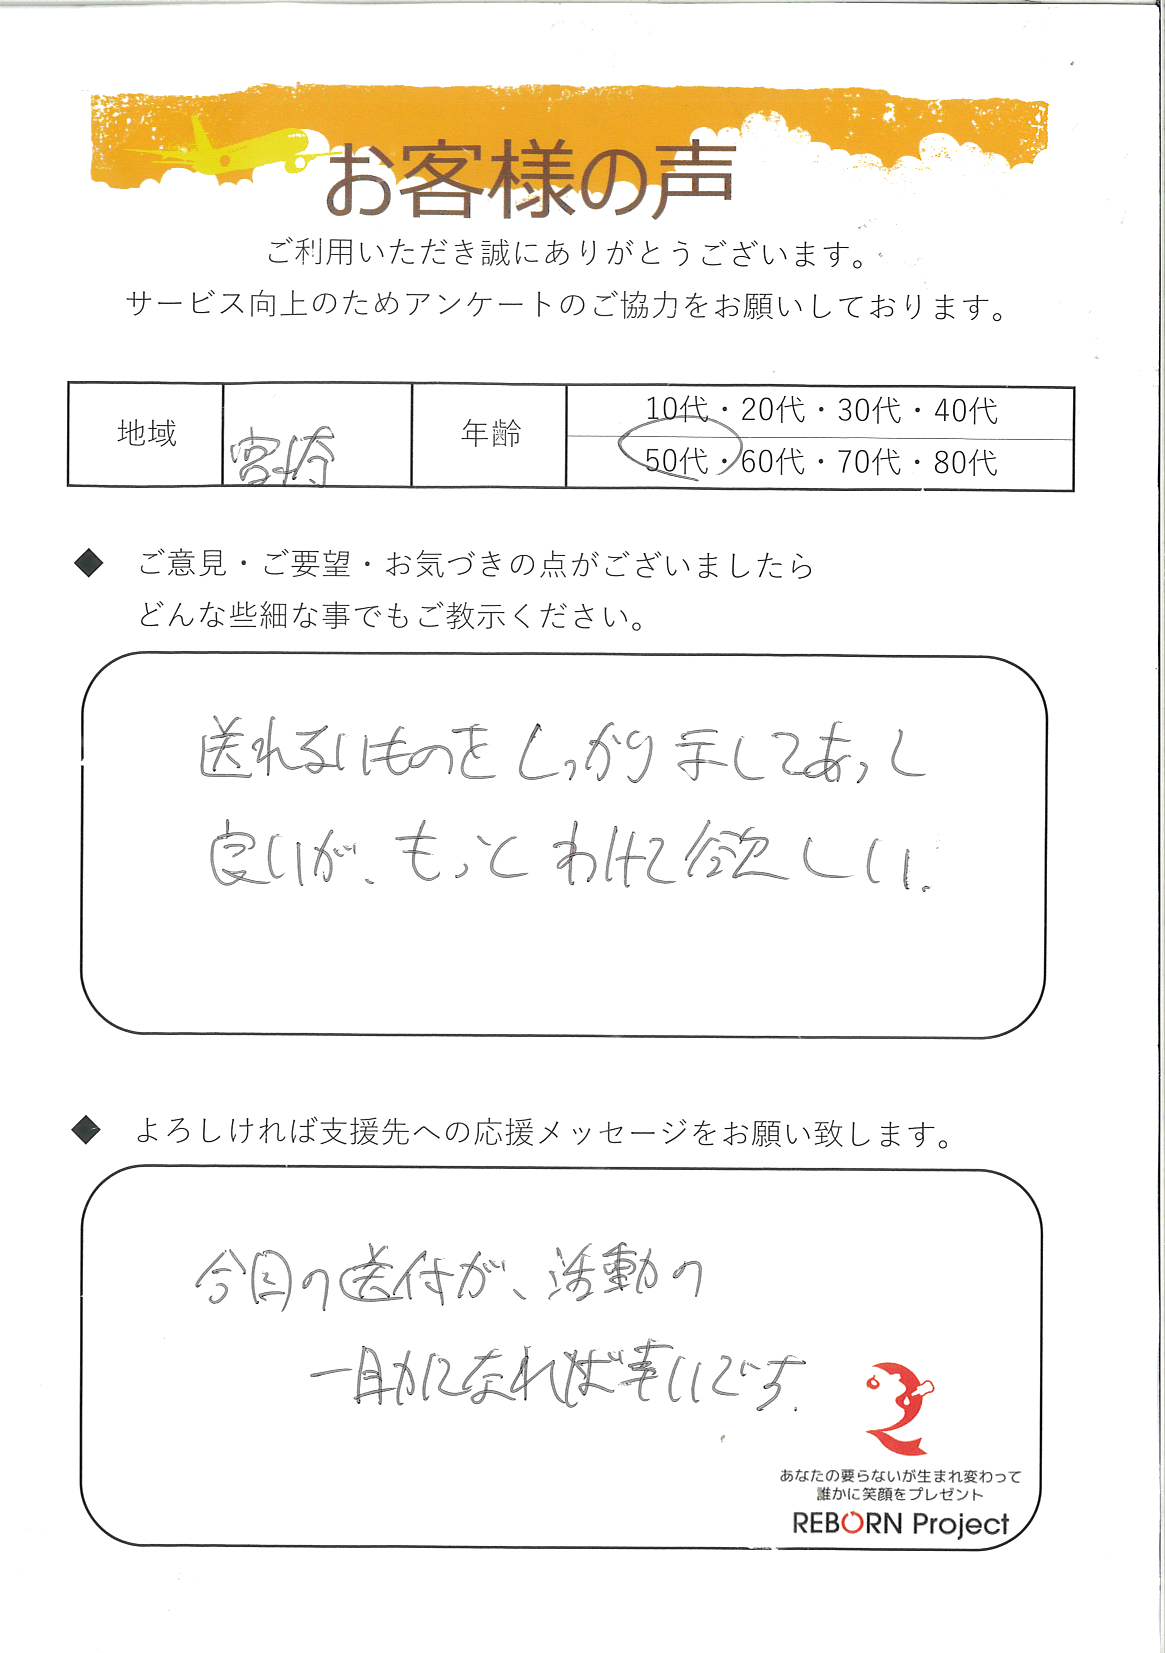 お客様の声
ご利用いただき誠にありがとうございます。
サービス向上のためアンケートのご協力をお願いしております。
地域
宮崎
年齢
10代・20代・30代・40代
50代・60代・70代・80代
◆ ご意見・ご要望・お気づきの点がございましたら
どんな些細な事でもご教示ください。
送れる ものを しっかり 示してあっ
良いが、もっと わけて 欲しい.
◆ よろしければ支援先への応援メッセージをお願い致します。
今回の送付が、活動の
一助になれば幸いです.
あなたの要らないが生まれ変わって
誰かに笑顔をプレゼント
REBORN Project